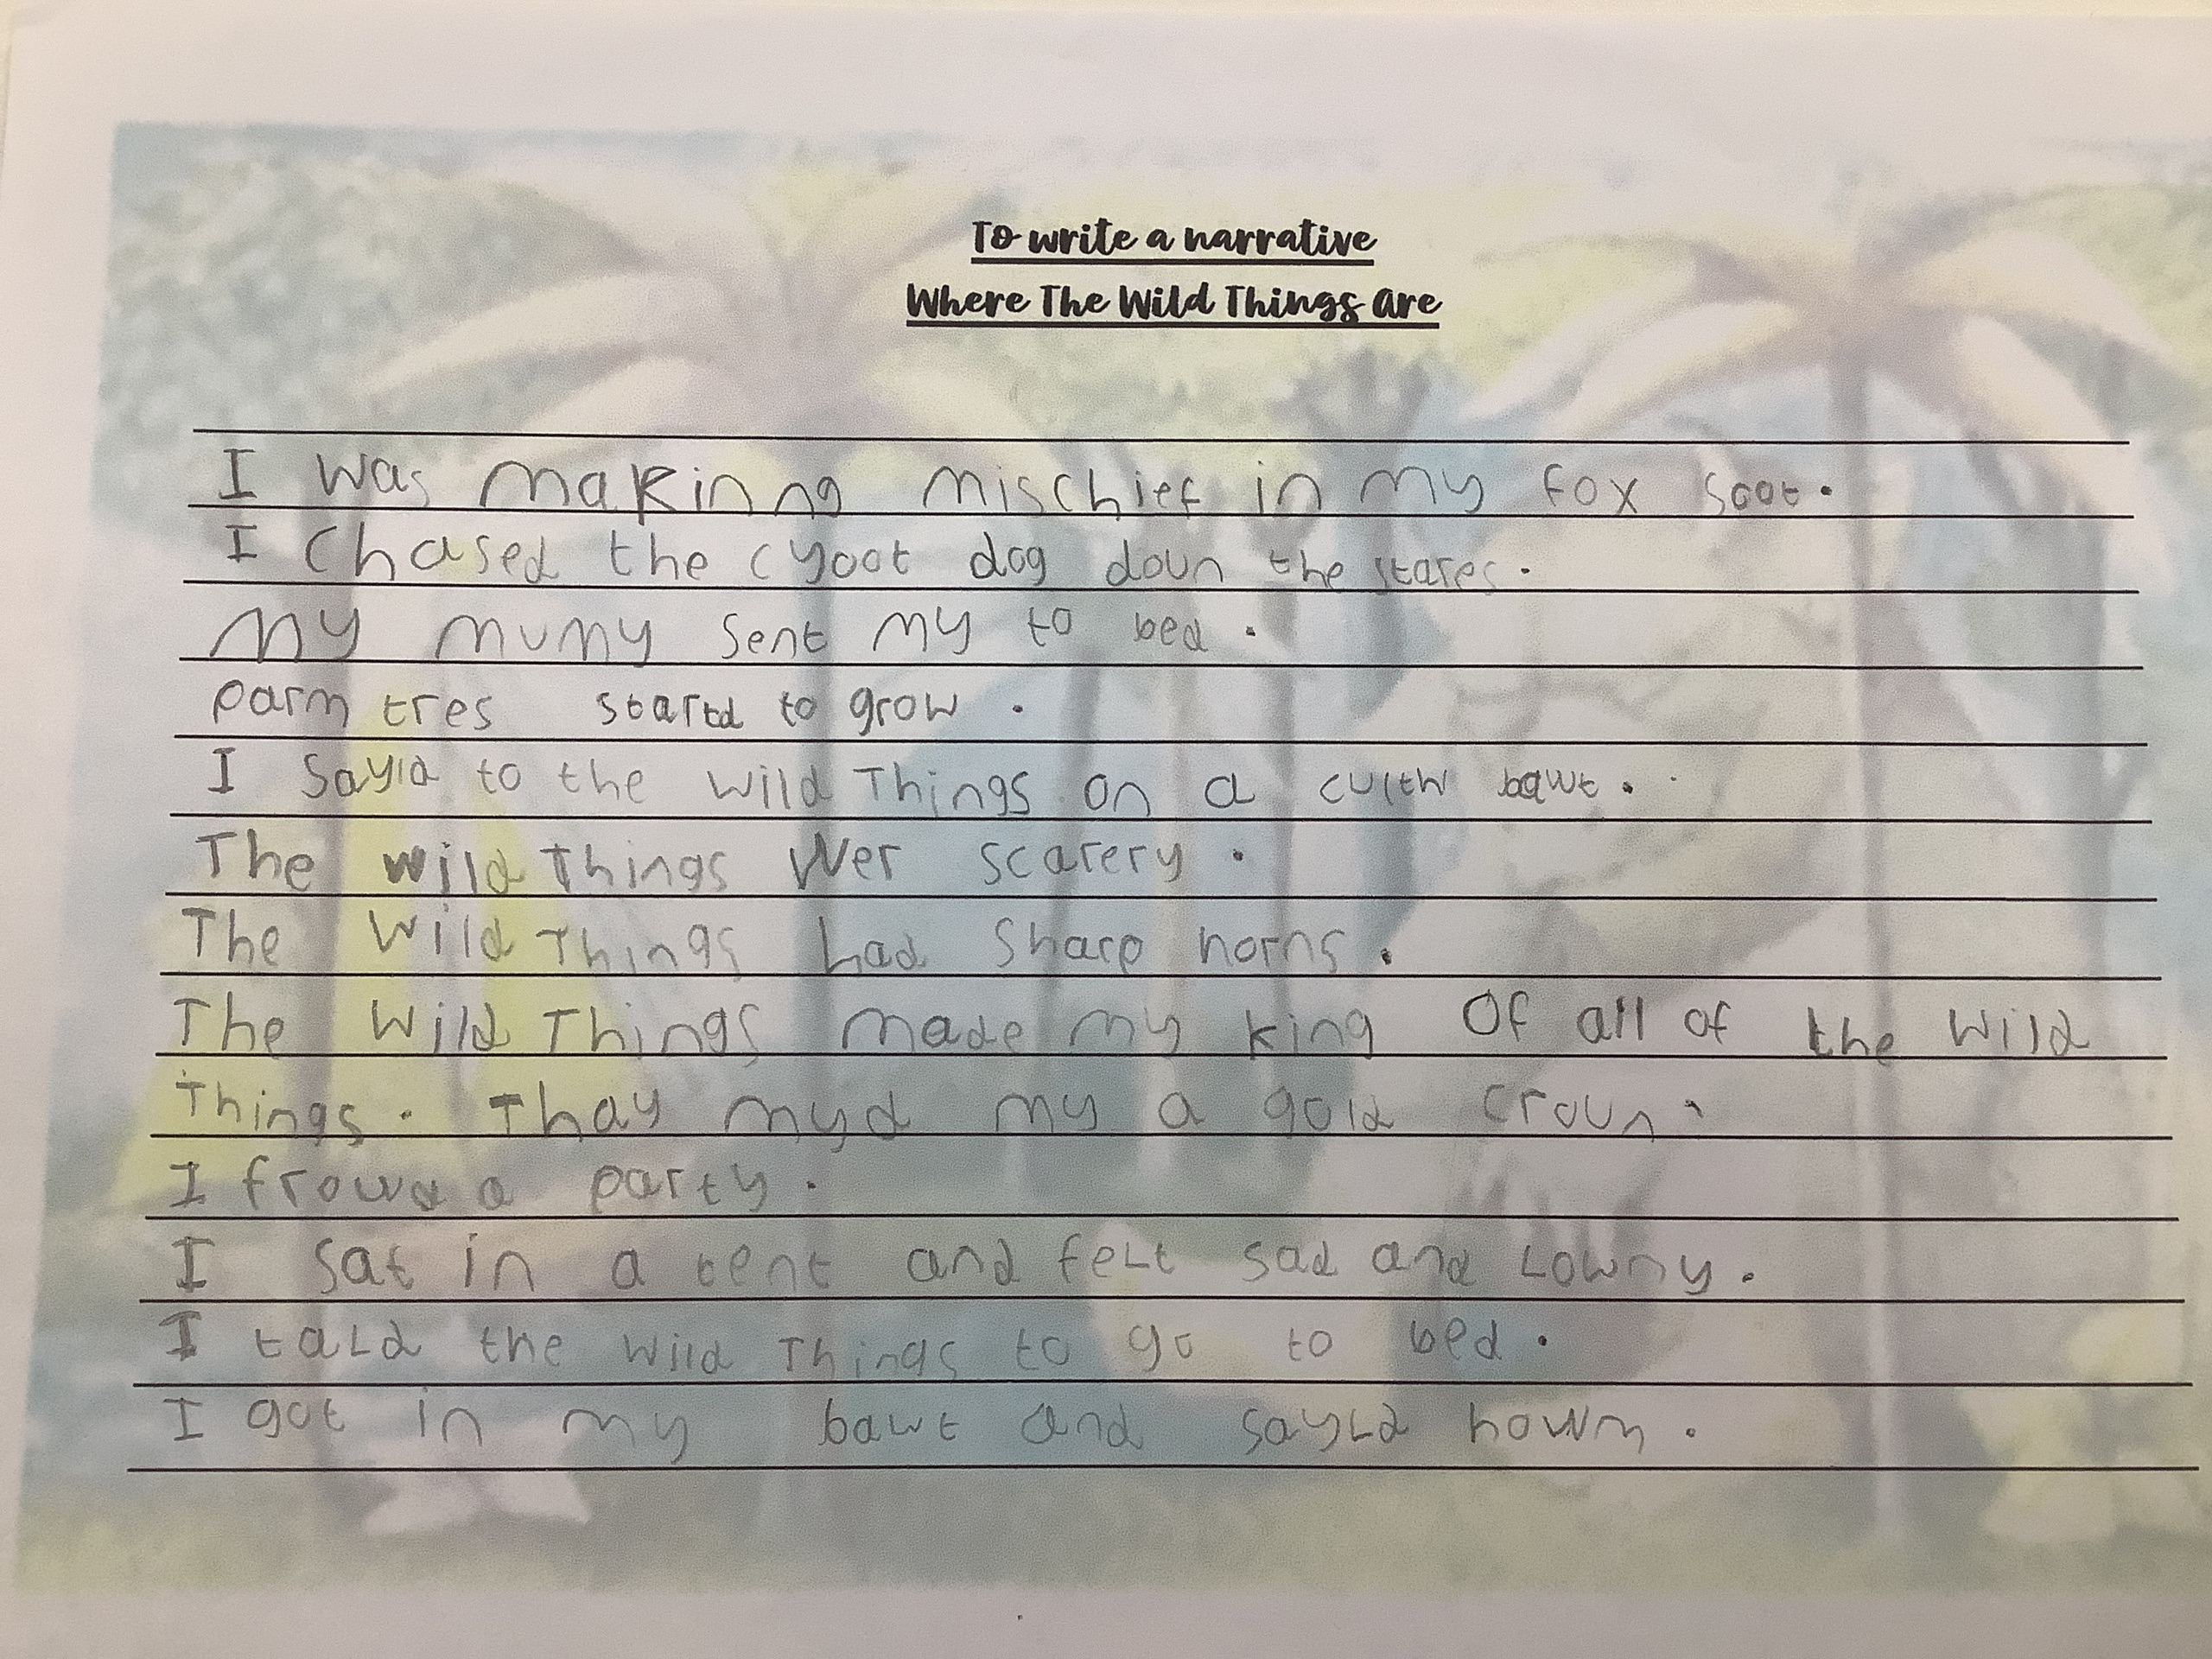 To write a narrative
Where The Wild Things Are
I was makinng mischief in my fox soot.
I chased the cyoot dog doun the stares.
My mumy sent my to bed.
parm tres startd to grow.
I sayld to the wild Things on a culth bawt.
The wild Things Wer scarery.
The Wild Things had sharp horns.
The Wild Things made my king Of all of the wild
Things. Thay myd my a gold croun.
I frowd a party.
I sat in a tent and feLt sad and Lowny.
I taLd the wild Things to go to bed.
I got in my bawt and sayLd howm.